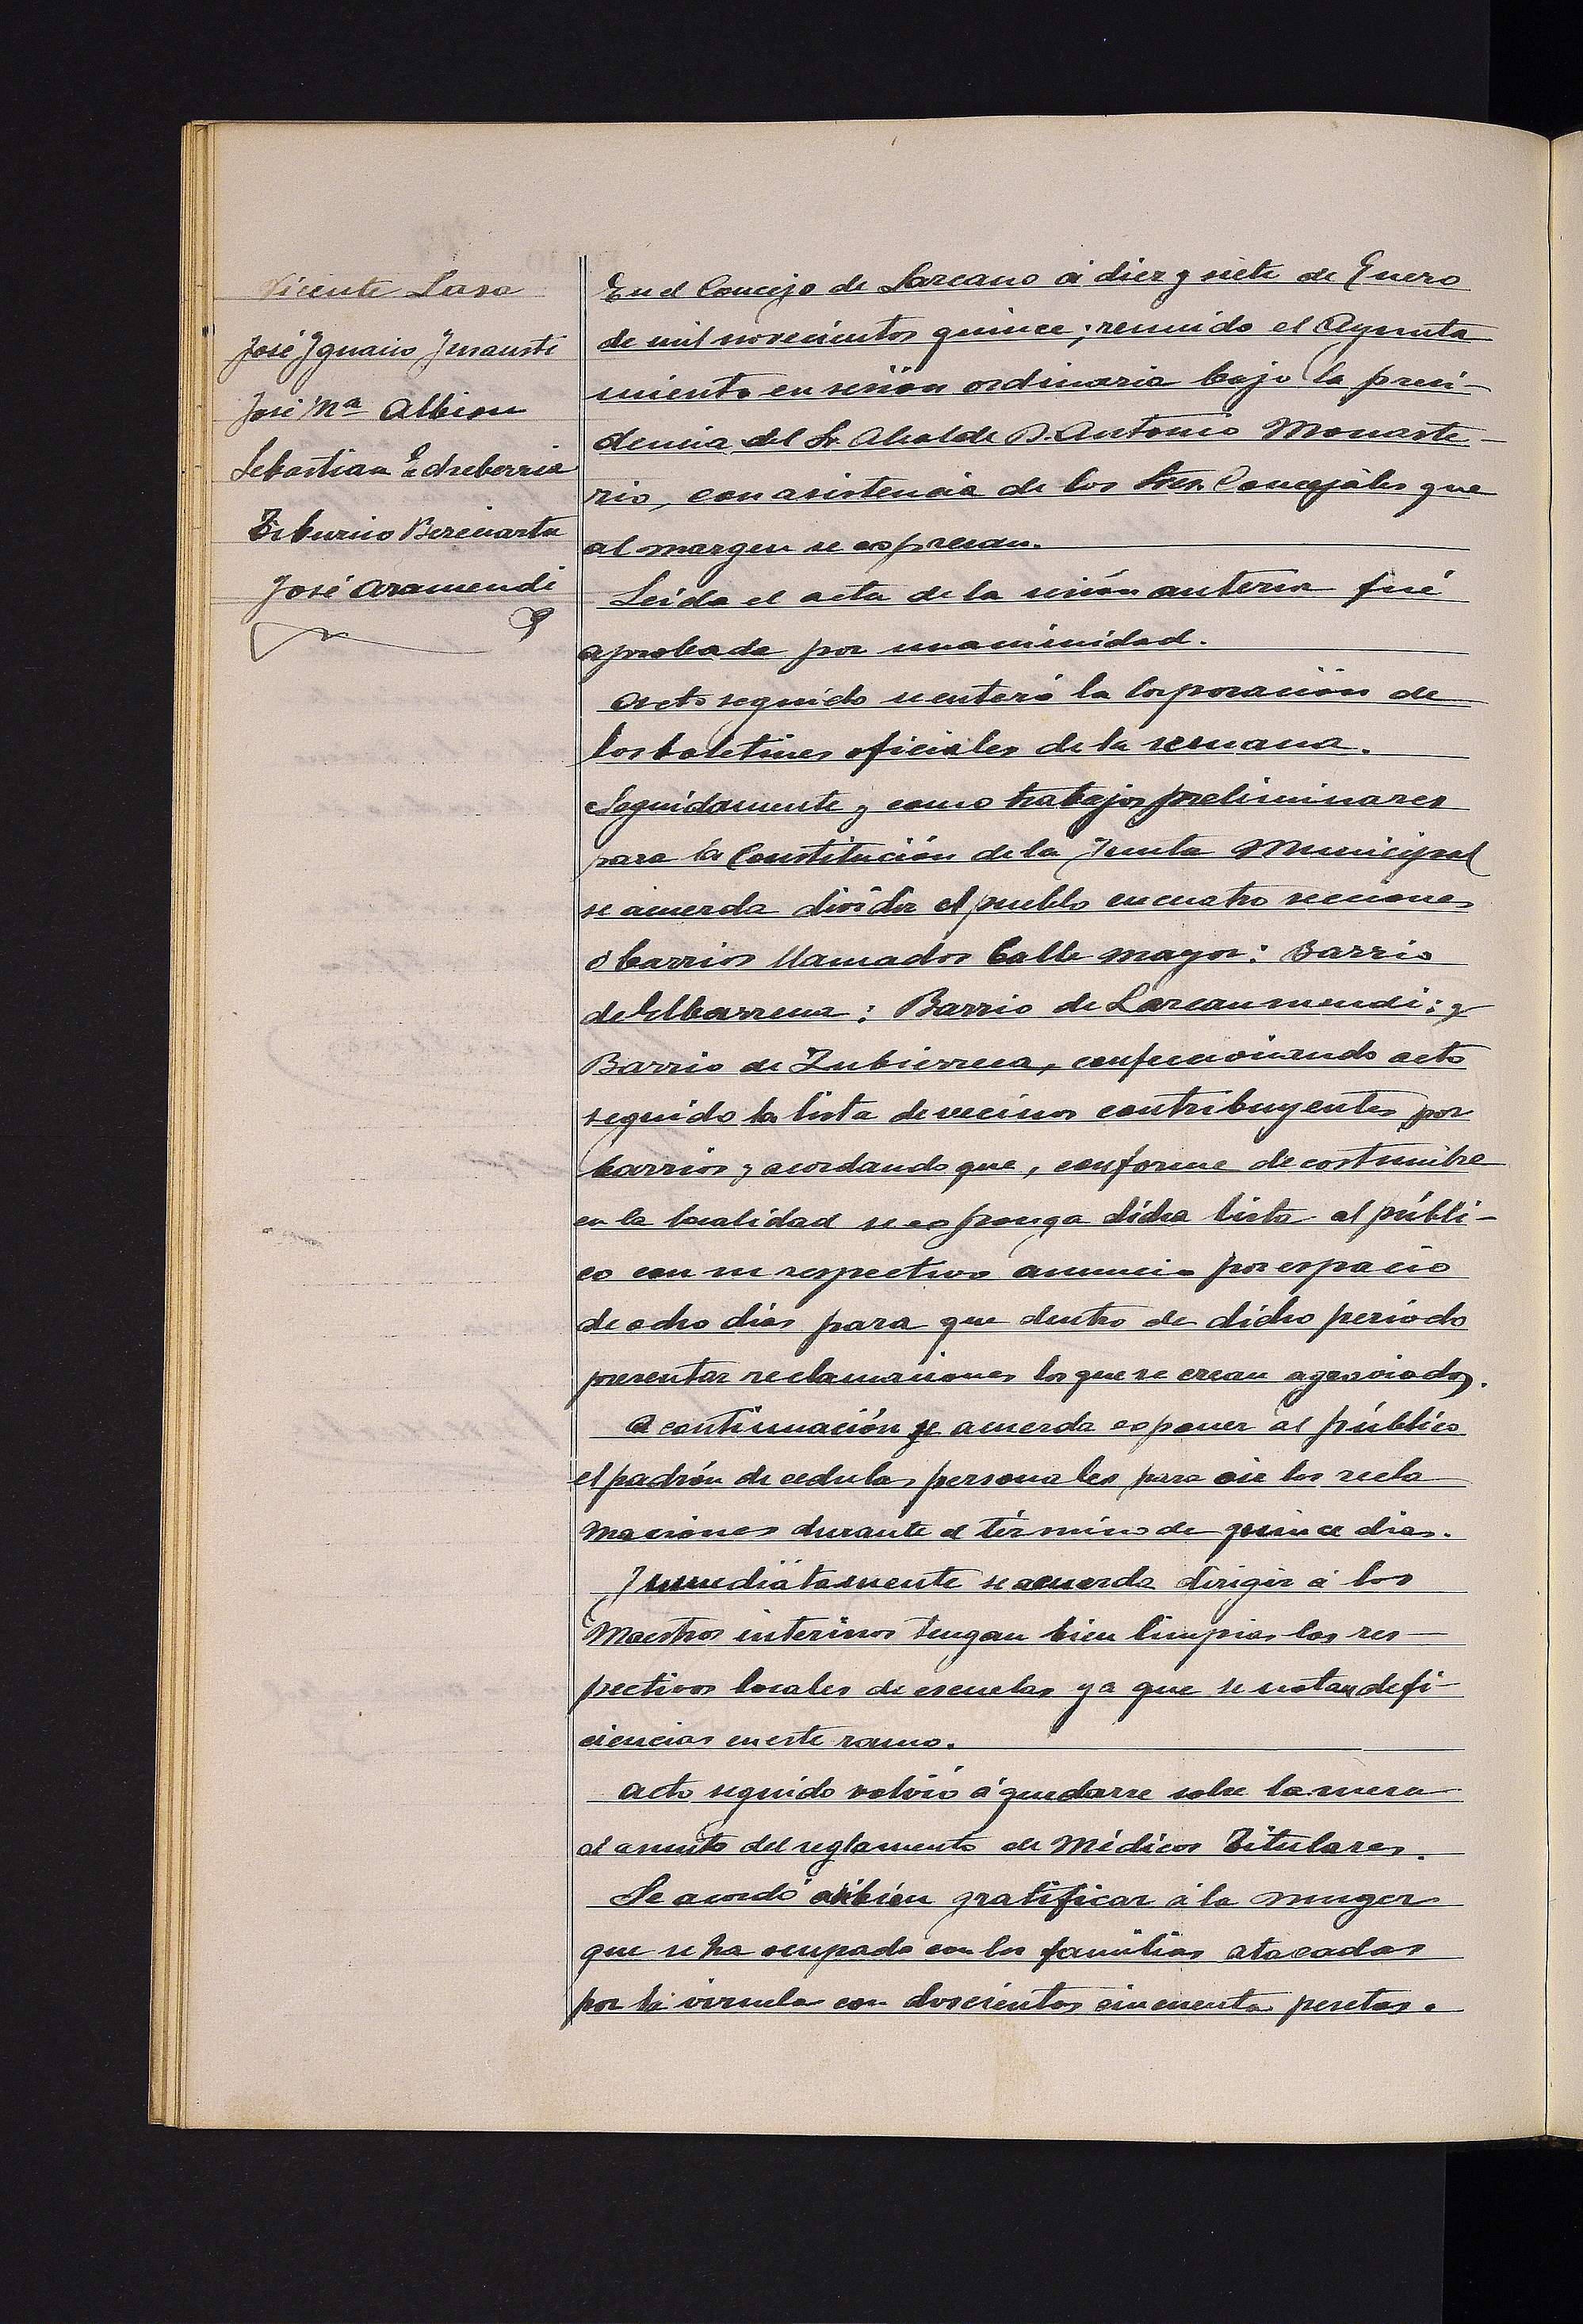 Vicente Lasa
José Ygnacio Ynsausti
José Mª Albisu
Sebastian Echeberria
Tiburcio Bereciartu
José Aramendi
En el Concejo de Lazcano á diez y siete de Enero
de mil novecientos quince; reunido el Ayunta
miento en sesión ordinaria bajo la presi-
dencia del Sr. Alcalde D. Antonio Monaste-
rio, con asistencia de los Sres. Concejales que
al margen se espresan.
Leida el acta de la sesión anterior fué
aprobada por unaminidad.
Acto seguido se enteró la Corporación de
los boletines oficiales de la semana.
Seguidamente y como trabajos preliminares
para la Constitución de la Junta Municipal
se acuerda dividir el pueblo en cuatro secciones
ó barrios llamados Calle mayor: Barrio
de Elbarrena: Barrio de Lazcaumendi: y
Barrio de Zubierreca, confeccionando acto
seguido la lista de vecinos contribuyentes por
barrios y acordando que, conforme de costumbre
en la localidad se esponga dicha lista al públi-
co con su respectivo anuncio por espacio
de ocho dias para que dentro de dicho periodo
presentar reclamaciones los que se crean agraviados.
A continuación se acuerda esponer al público
el padrón de cedulas personales para oir las recla
maciones durante el término de quince dias.
Ynmediatamente se acuerda dirigir á los
Maestros interinos tengan bien limpios los res-
pectivos locales de escuelas ya que se notan defi-
ciencias en este ramo.
Acto seguido volvió á quedarse sobre la mesa
el asunto del reglamento de Médicos Titulares.
Se acordó gratificar á la muger
que se ha ocupado con las familias atacadas
por la viruela con doscientas cincuenta pesetas.